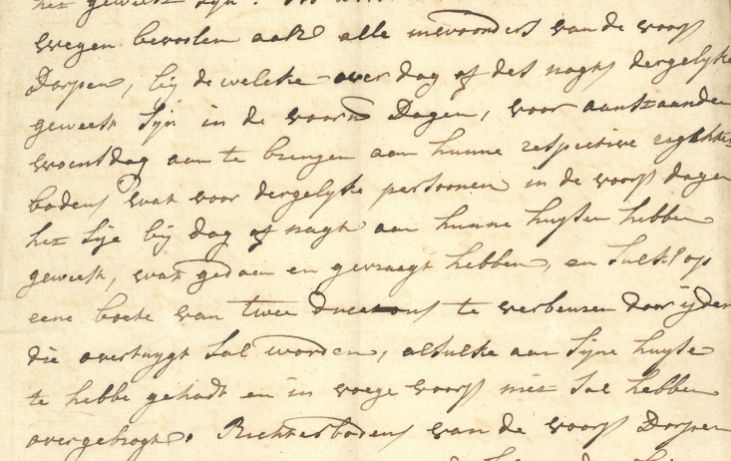 het geweest sijn.
wegen bevoolen aan alle inwoonders van de voors
Dorpen, bij de welcke over dag of des nagts dergelyke
geweest sijn in de voorn Dagen, voor aanstaanden
woensdag aan te brengen aan hunne respective
bodens wat voor dergelyke persoonen in de voors dagen
het sije bij dag of nagt aan hunne huysen hebben
geweest, wat gedaen en gevraegt hebben, en sulks op
eene boete van twee ducatons te verbeuren door ijder
die overtuygt sal worden, alsulke aan sijne huyse
te hebbe gehadt en in voege voors niet sal hebben
overgebragt. Richtersbodens van de voors Dorpen